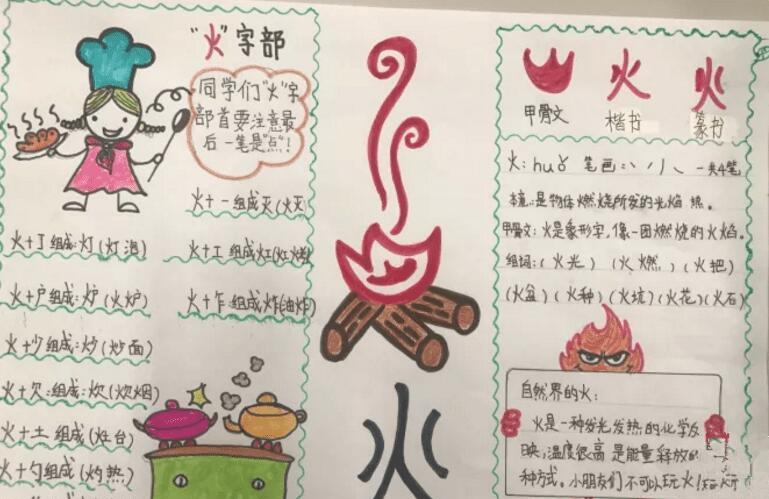 "火"字部
同学们"火"字
部首要注意最
后一笔是"点"!
火+一组成灭(火灭)
火+丁组成:灯(灯泡)
火+工组成灶(灶
火+户组成:炉(火炉)
火+乍:组成炸(油炸)
火+少组成:炒(炒面)
火+欠:组成:炊(炊烟)
火+土组成(灶台)
火+勺组成(灼热)
火
甲骨文
楷书
篆书
火
火
火:huǒ 笔画:丶丿丿丶一共4笔
本意:是物体燃烧所发的光焰 热。
甲骨文:火是象形字,像一团燃烧的火焰。
组词:(火光) (火燃)(火把)
(火盆)(火种)(火坑)(火花)(火石)
自然界的火:
火是一种发光发热的化学反
映,温度很高 是能量释放的一
种方式。小朋友们不可以玩火!